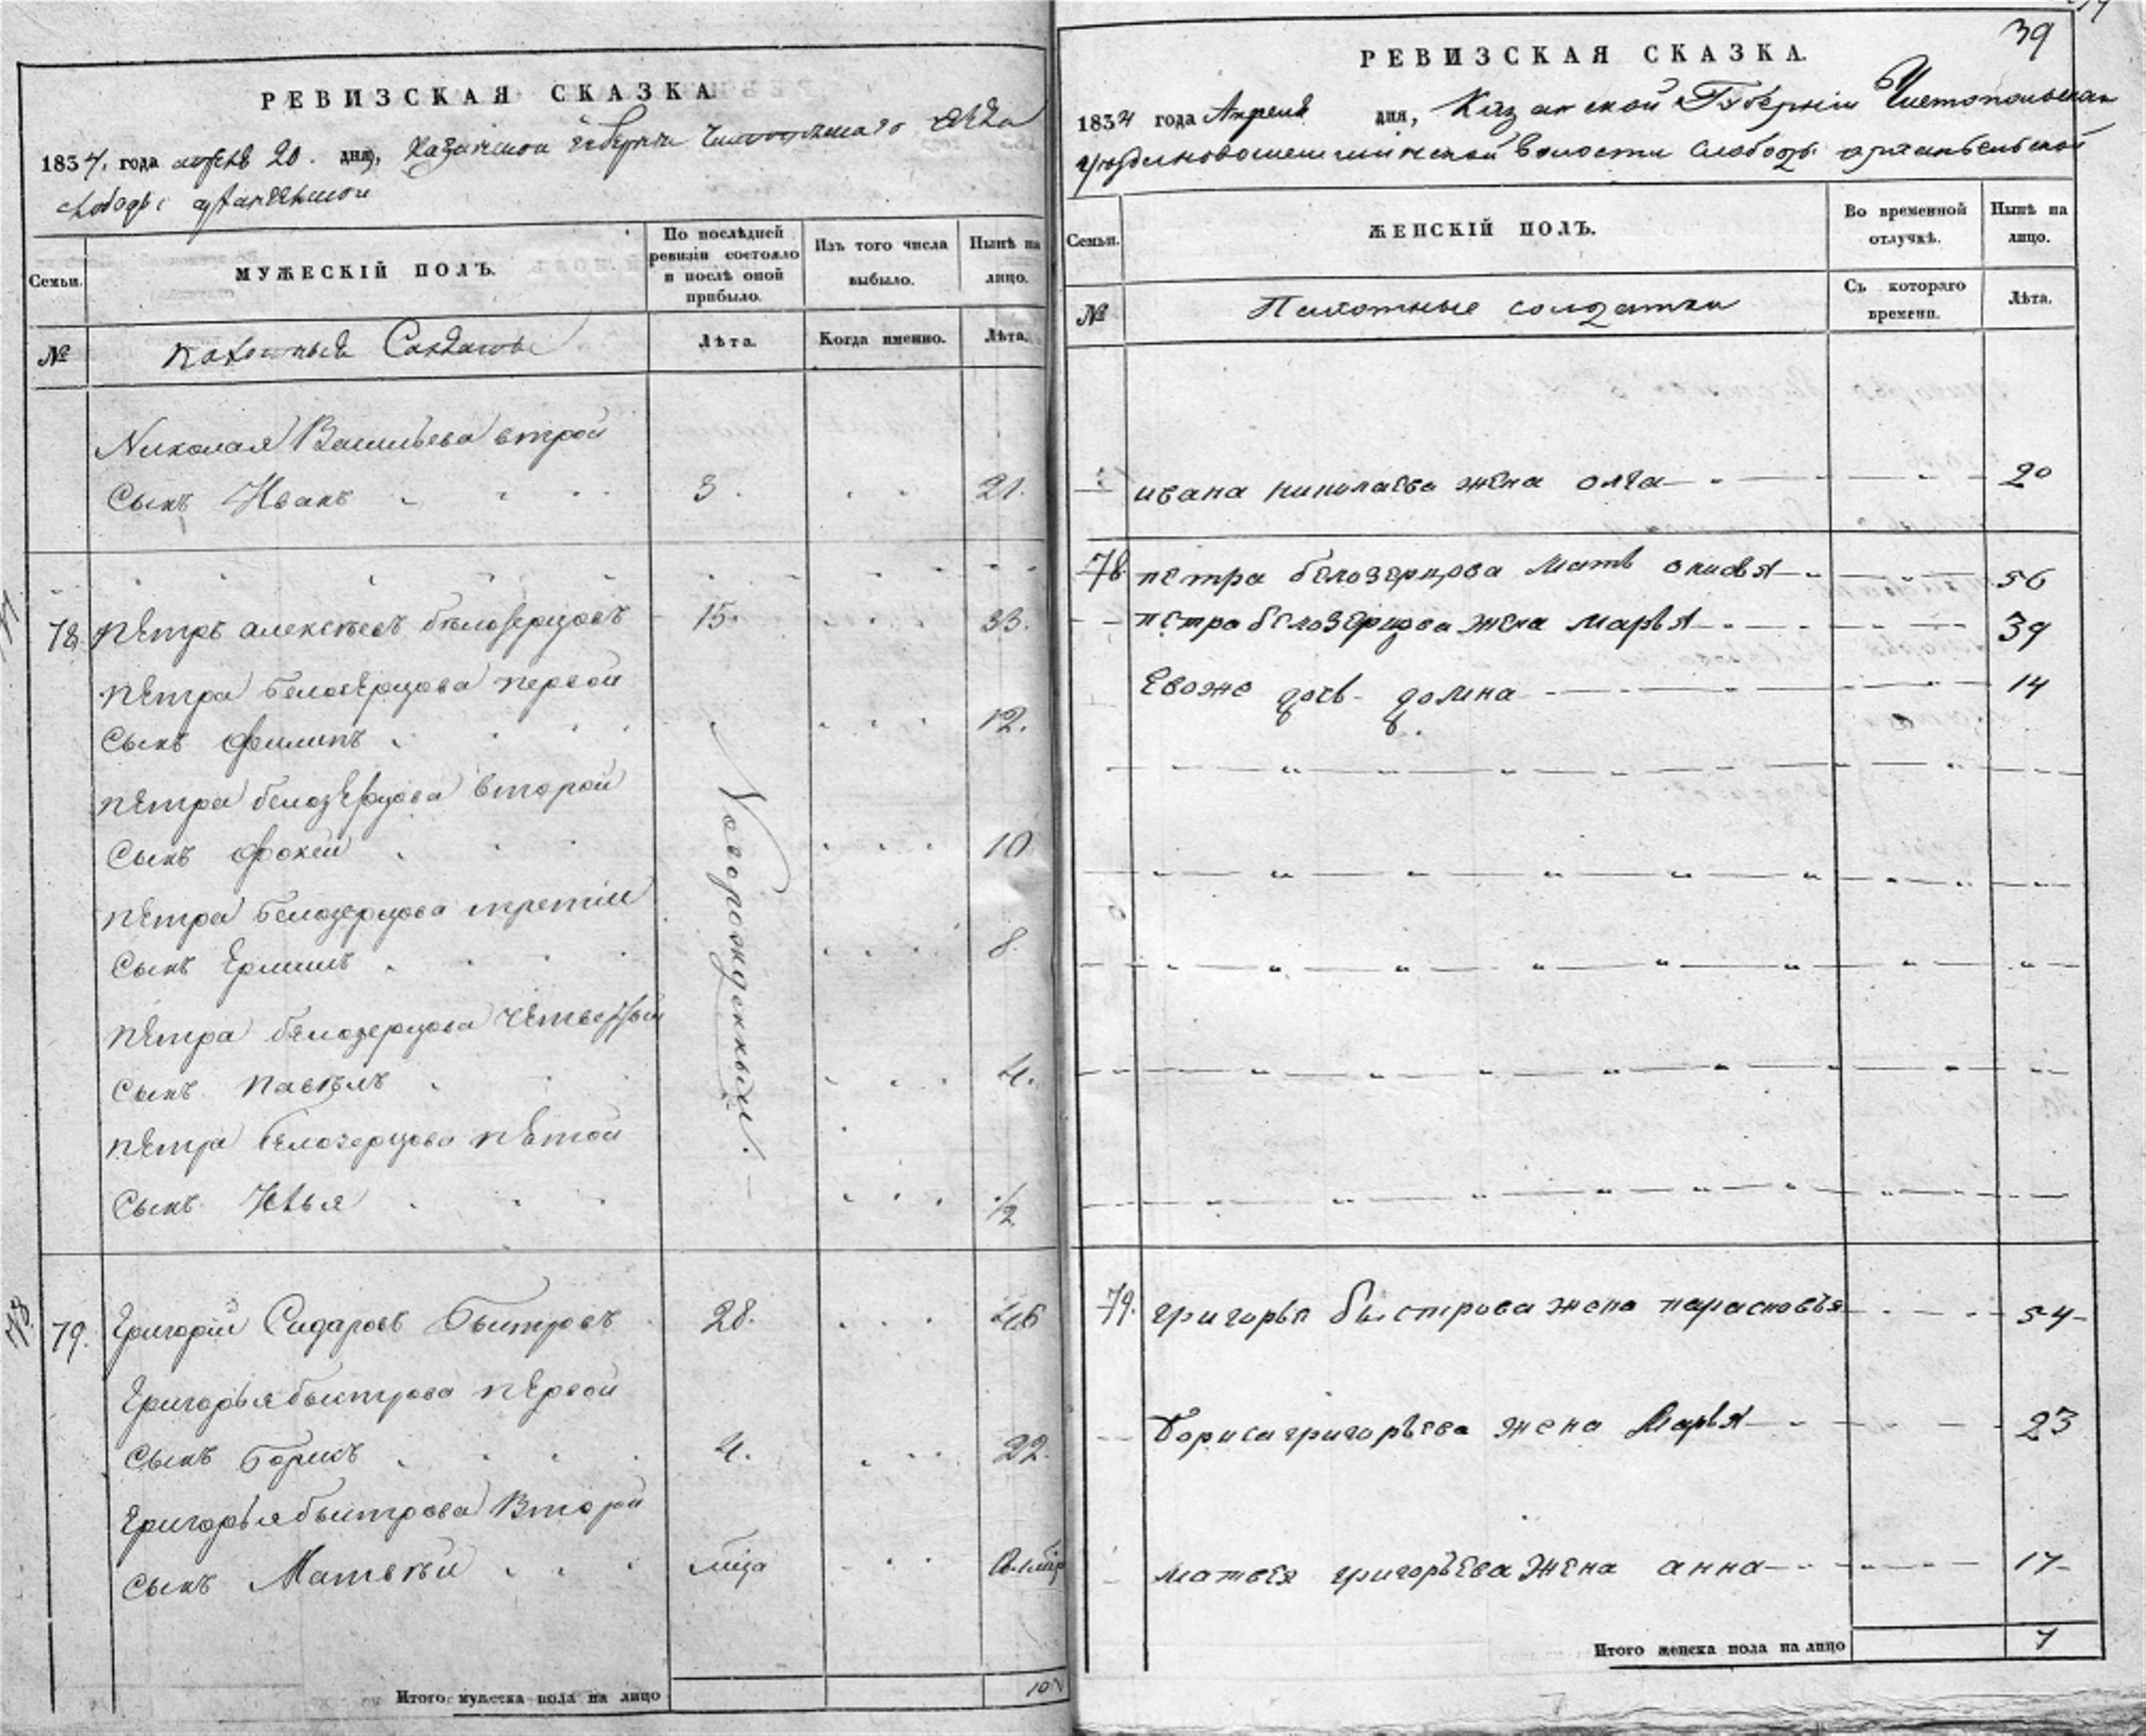 РЕВИЗСКАЯ СКАЗКА
1834, года апреля 20. дня, Казанской губернии Чистопольского уезда
слободы архангельской
Семьи.
МУЖЕСКІЙ ПОЛЪ.
По последней ревизіи состояло и послѣ оной прибыло.
Изъ того числа выбыло.
Нынѣ на лицо.
№
Пахотныя Солдаты
Лѣта.
Когда именно.
Лѣта.
Николая Васильева второй
Сынъ Иванъ 3. 21.
78. Петръ алексѣевъ белозерцовъ 15. 33.
Петра белозерцова первой
Сынъ филипъ 12.
Петра белозерцова второй
Сынъ фокей 10
Петра белозерцова третій
Сынъ Ермилъ 8.
Петра белозерцова четвертый
Сынъ Павелъ 4.
Петра белозерцова пятой
Сынъ Илья 1/2
Новорожденныи.
79. Григорій Сидаровъ Быстровъ 28. 46
Григорья быстрова первой
Сынъ Борисъ 4. 22.
Григорья быстрова Второй
Сынъ Матвѣй
Итого мужеска пола на лицо 10
39
РЕВИЗСКАЯ СКАЗКА.
1834 года Апреля дня, Казанской Губерніи Чистопольскаго
волости слободы архангельской
Семьи.
ЖЕНСКІЙ ПОЛЪ.
Во временной отлучкѣ.
Нынѣ на лицо.
№
Пахотные солдатки
Съ котораго времени.
Лѣта.
ивана николаева жена олга 20
78. петра белозерцова мать 56
петра белозерцова жена марья 39
Евоже дочь домна 14
79. григорья быстрова жена парасковья 54
Бориса григорьева жена Марья 23
матвея григорьева жена анна 17
Итого женска пола на лицо 7